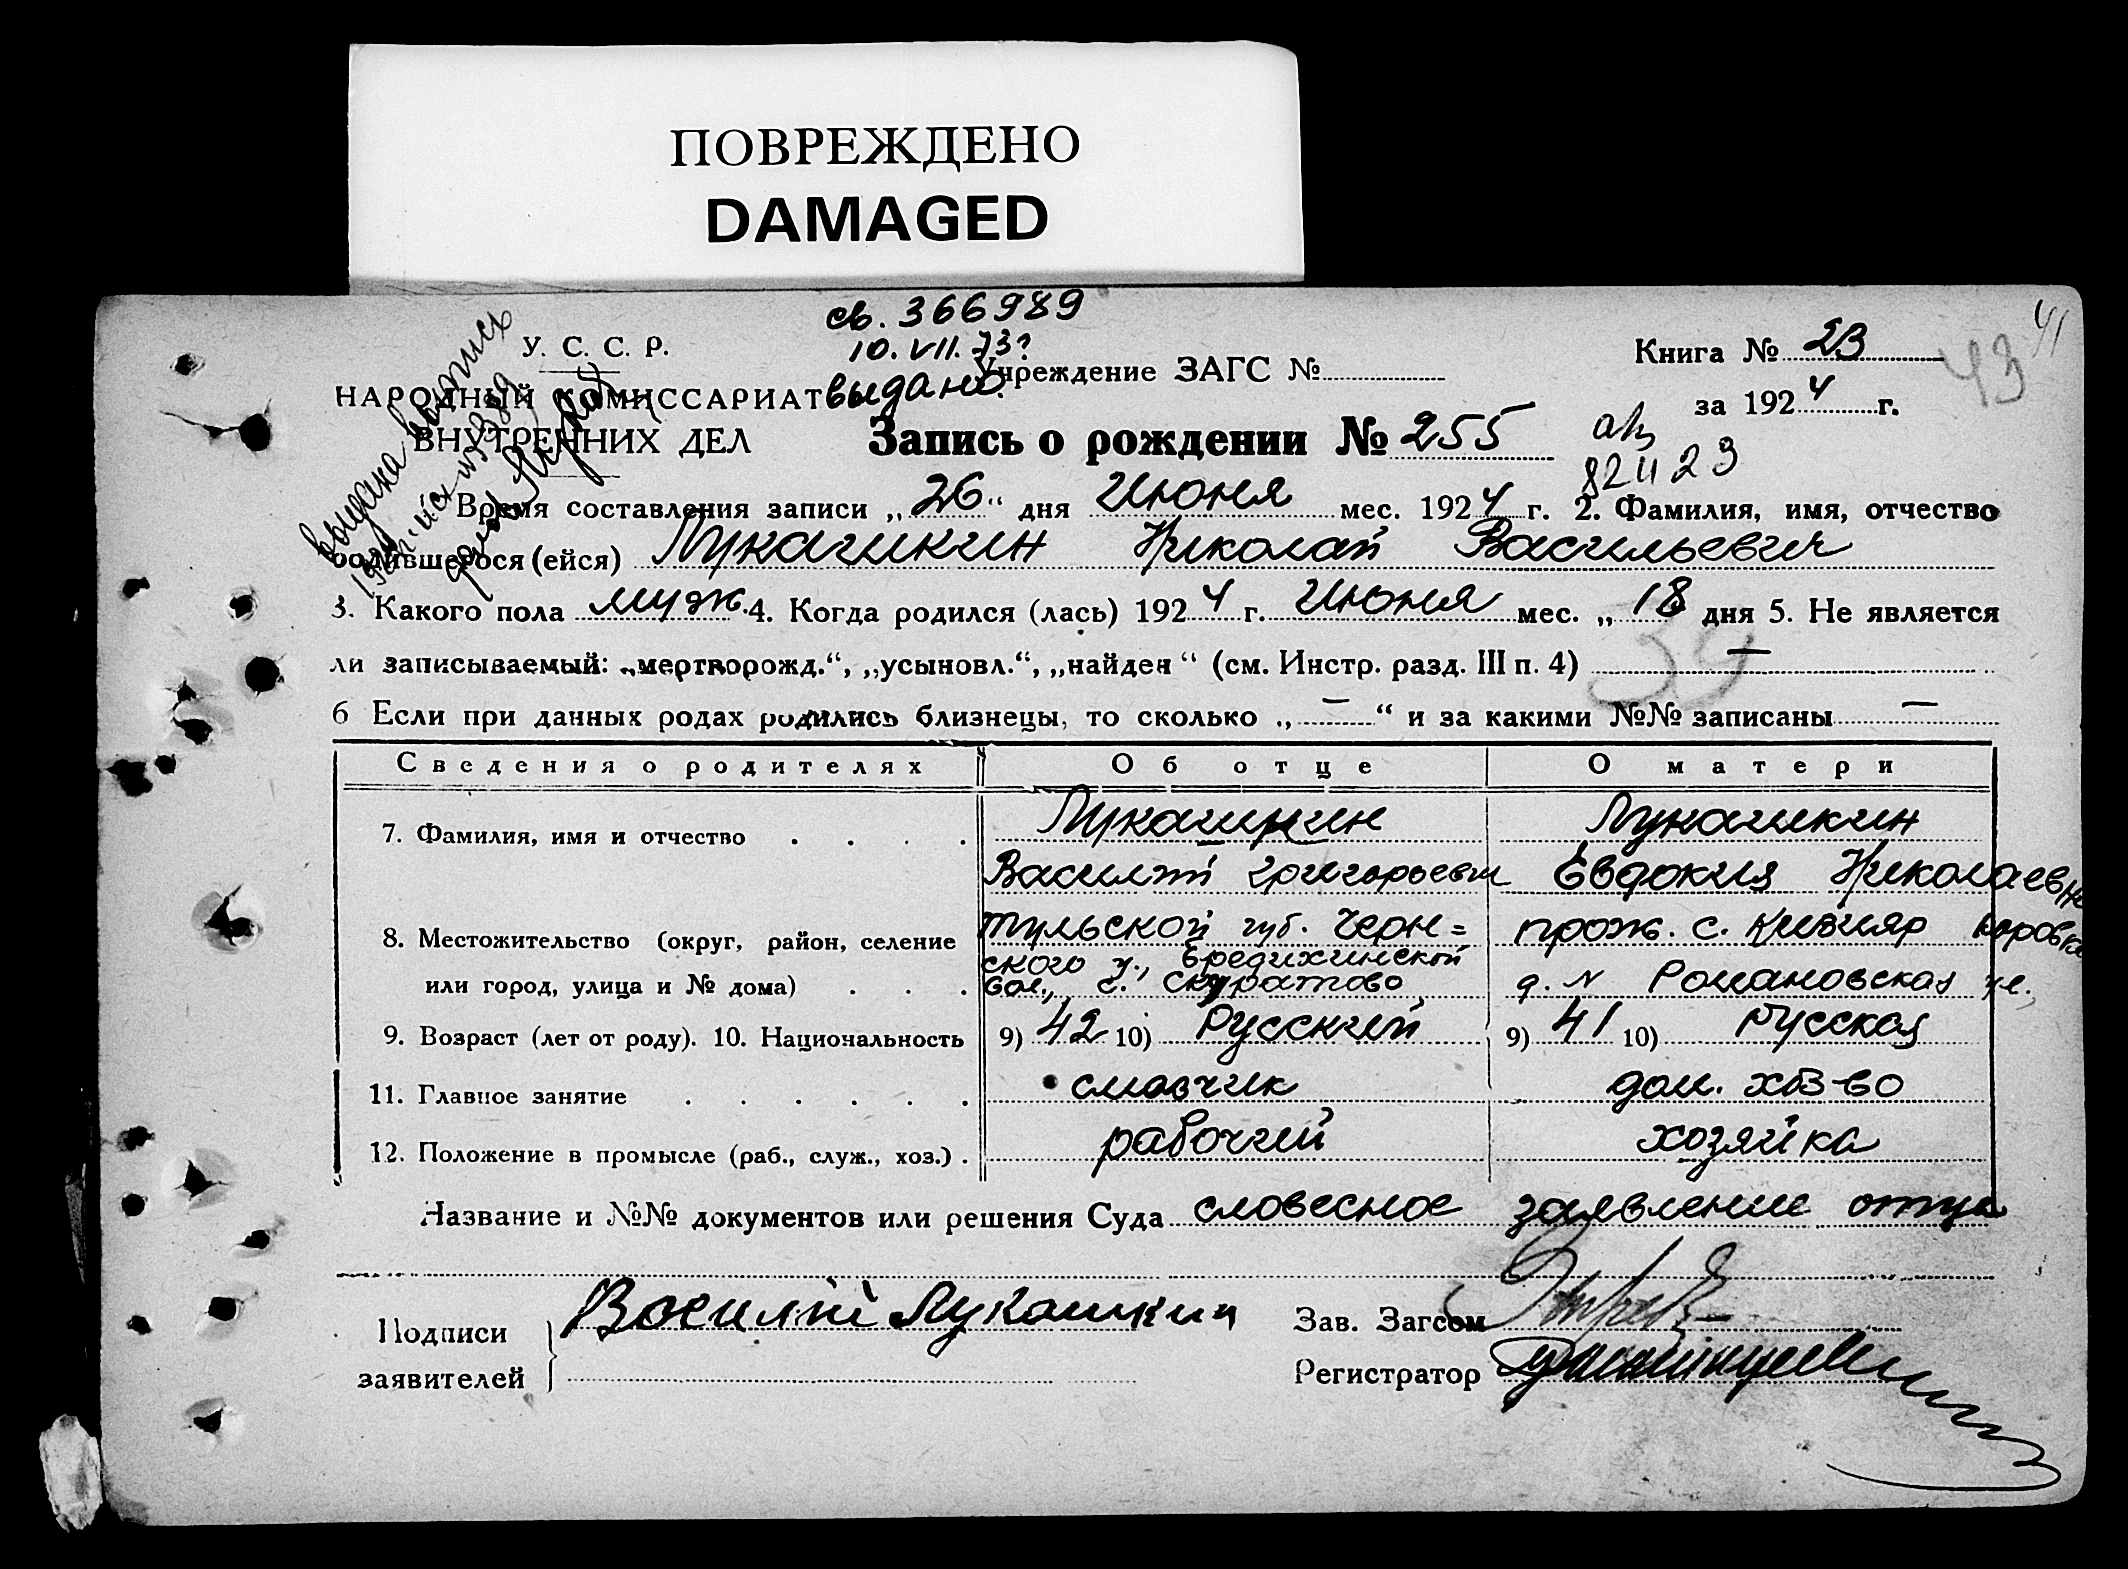 ПОВРЕЖДЕНО
DAMAGED
св. 366989
10. VII. 73г
выдано
41
43
У. С. С. Р.
НАРОДНЫЙ КОМИССАРИАТ
ВНУТРЕННИХ ДЕЛ
Учреждение ЗАГС №
Книга № 23
за 1924 г.
Запись о рождении № 255
выдана выпись
82423
Время составления записи „26“ дня Июня мес. 1924 г. 2. Фамилия, имя, отчество
родившегося (ейся) Лукашикин Николай Васильевич
3. Какого пола муж. 4. Когда родился (лась) 1924 г. Июня мес. „18 дня 5. Не является
ли записываемый: „мертворожд.“, „усыновл.“, „найден“ (см. Инстр. разд. III п. 4) —
39
6 Если при данных родах родились близнецы, то сколько „—“ и за какими №№ записаны —
Сведения о родителях Об отце О матери
7. Фамилия, имя и отчество . . . . Лукашикин Лукашикин
Василий Григорьевич Евдокия Николаевна
8. Местожительство (округ, район, селение Тульской губ. Черн= прож. с. Кизияр
ского у., Бредихинской
или город, улица и № дома) . . . вол., с. Скуратово д. N Романовская ул.
9. Возраст (лет от роду). 10. Национальность 9) 42 10) Русский 9) 41 10) Русская
11. Главное занятие . . . . . . смазчик дом. хоз-во
12. Положение в промысле (раб., служ., хоз.) . рабочий хозяйка
Название и №№ документов или решения Суда словесное заявление отца
Подписи
заявителей
Василий Лукашкин
Зав. Загсом
Регистратор